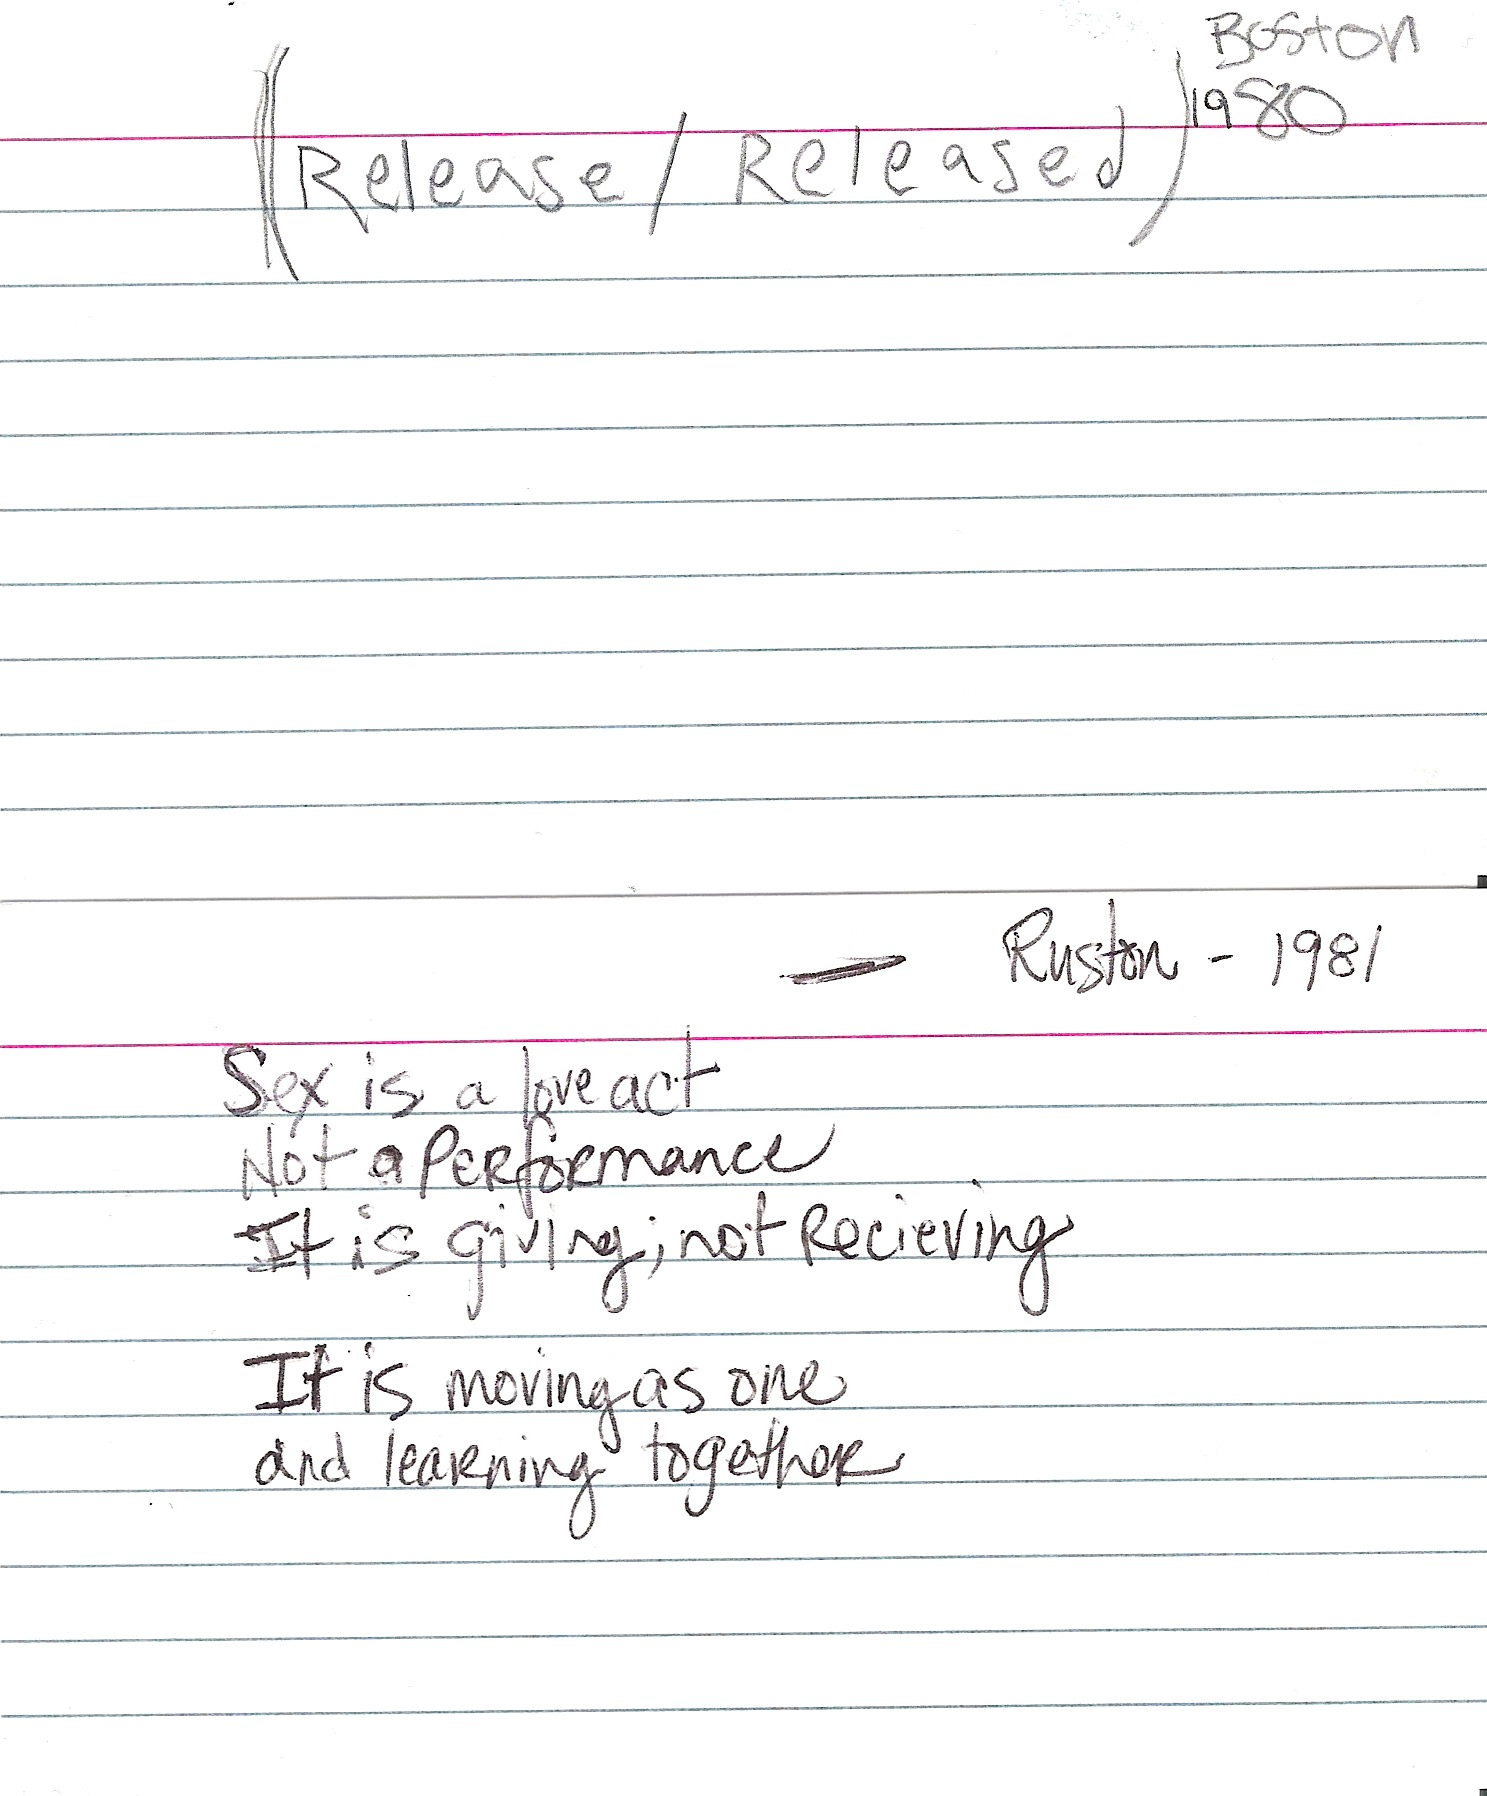 Boston
1980
(Release / Released)
— Ruston - 1981
Sex is a love act
Not a Performance
It is giving; not Recieving
It is moving as one
and learning together